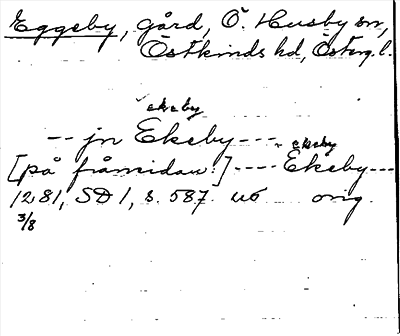 Eggeby, gård, Ö. Husby sn,
Östkinds hd, Österg. l.
ekeby
-- jn Ekeby ---
ekeby
[på framsidan:] ---- Ekeby ---
1281, SD 1, s. 587. orig.
3/8